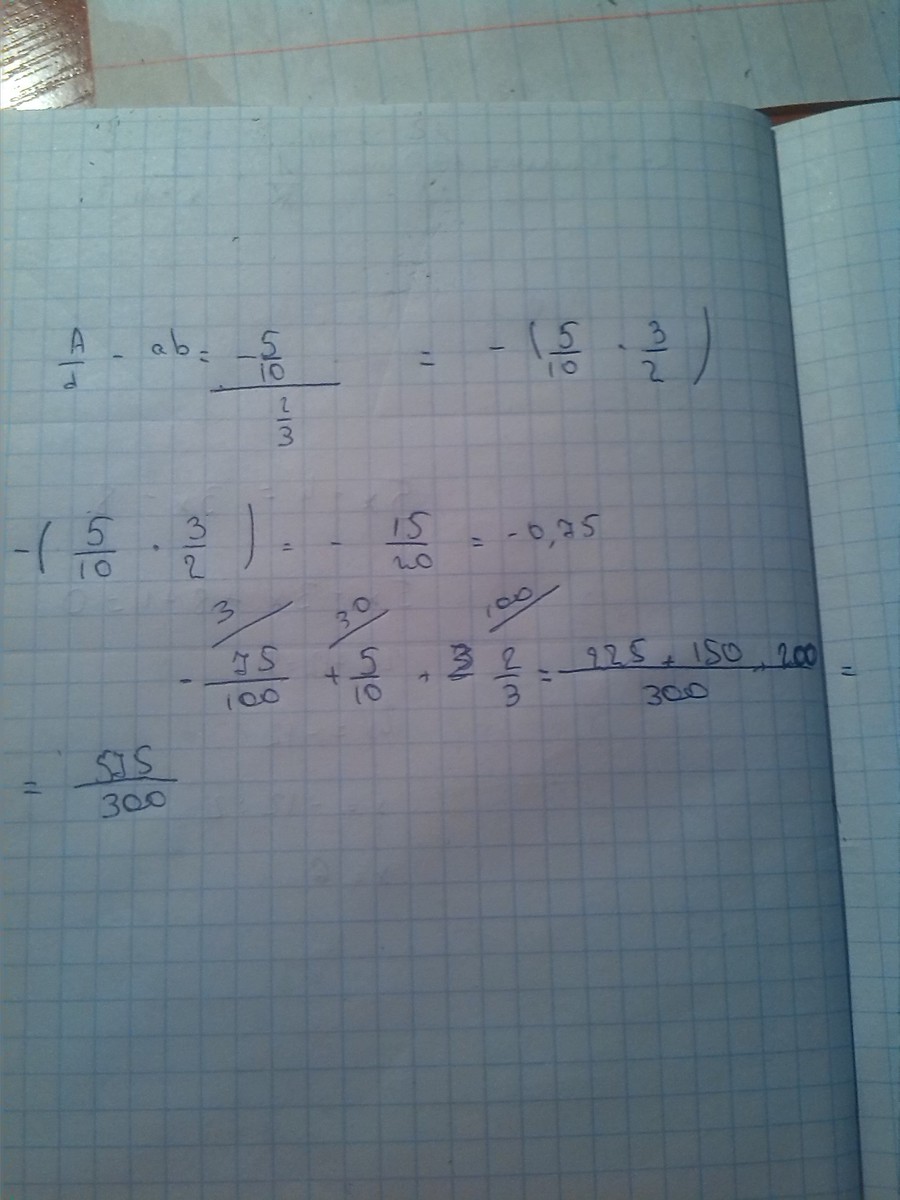 A/d - ab = (-5/10)/(2/3) = -(5/10 · 3/2)
-(5/10 · 3/2) = - 15/20 = -0,75
3 30 100
- 75/100 + 5/10 + 2/3 = (225 + 150 + 200)/300 =
= 575/300